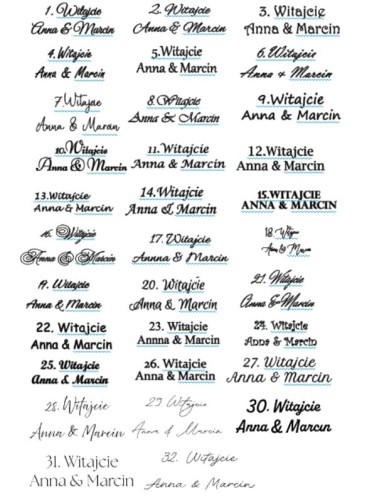 1. Witajcie
Anna & Marcin
2. Witajcie
Anna & Marcin
3. Witajcie
Anna & Marcin
4. Witajcie
Anna & Marcin
5.Witajcie
Anna & Marcin
6. Witajcie
Anna & Marcin
7.Witajcie
Anna & Marcin
8.Witajcie
Anna & Marcin
9.Witajcie
Anna & Marcin
10.Witajcie
Anna & Marcin
11.Witajcie
Anna & Marcin
12.Witajcie
Anna & Marcin
13.Witajcie
Anna & Marcin
14.Witajcie
Anna & Marcin
15.WITAJCIE
ANNA & MARCIN
16. Witajcie
Anna & Marcin
17. Witajcie
Annna & Marcin
18. Witajcie
Anna & Marcin
19. Witajcie
Anna & Marcin
20. Witajcie
Anna & Marcin
21. Witajcie
Anna & Marcin
22. Witajcie
Anna & Marcin
23. Witajcie
Annna & Marcin
24. Witajcie
Anna & Marcin
25. Witajcie
Anna & Marcin
26. Witajcie
Anna & Marcin
27. Witajcie
Anna & Marcin
28. Witajcie
Anna & Marcin
29. Witajcie
Anna & Marcin
30. Witajcie
Anna & Marcin
31. Witajcie
Anna & Marcin
32. Witajcie
Anna & Marcin